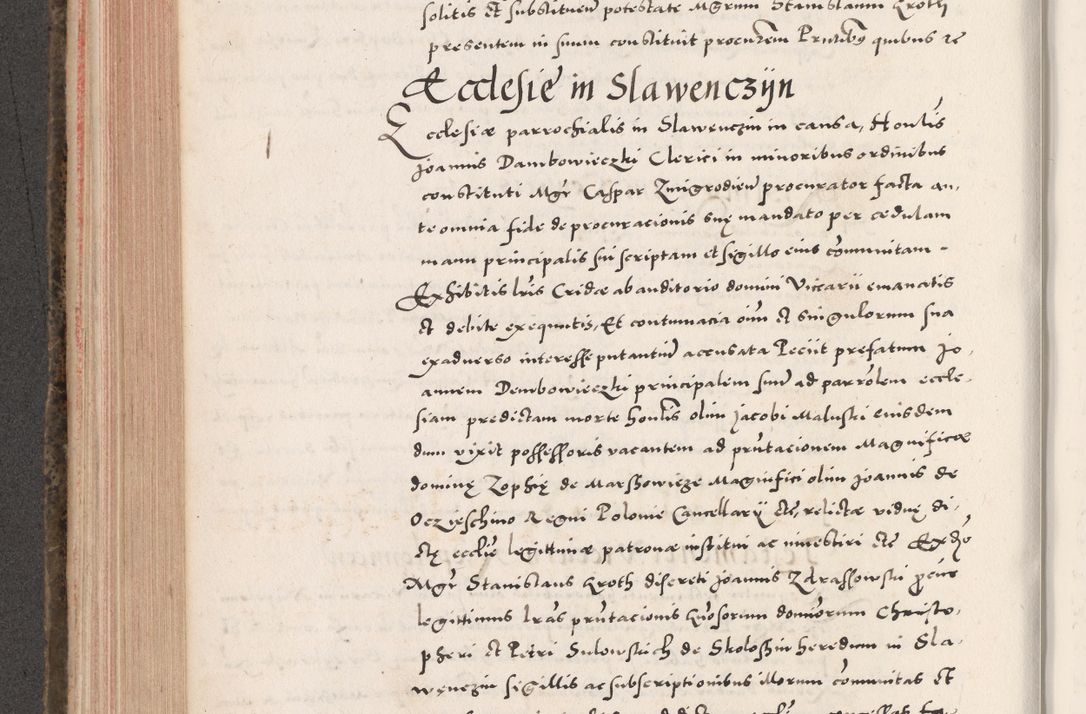 solitis et substituendi potestate Mgrum Stanislaum Kroth
presentem in suum constituit procurem Prntibus quibus re
Ecclesie in Slawenczijn
Ecclesiæ parrochialis in Slawenczin in causa, Honlis
Joannis Dambowieczki Clerici in minoribus ordinibus
constituti Mgr Caspar Zmigrodien procurator facta an,
te omnia fide de procuracionis suę mandato per cedulam
manu principalis sui scriptam et sigillo eius communitam -
Exhibitis lris Cridæ ab auditorio domini Viccarii emanatis
et debite exequutis, Et contumacia oim et singulorum sua
exadverso interesse putantium accusata Peciit prefatum Jo,
annem Dembowieczki principalem suum ad parrolem eccle,
siam predictam morte honlis olim Jacobi Maluski eiusdem
dum vixit possessoris vacantem ad prntacionem Magnificæ
dominę Zophię de Marszowicze Magnifici olim Joannis de
Oczieschino Regni Polonie Cancellarij etc, relictæ viduę di,
ctę ecclie legittimæ patronæ institui ac investiri etc Exdo
Mgr Stanislaus Kroth discreti Joannis Zdrassowski procus
legittimus lras prntacionis Gnosorum dominorum Christo,
pheri et Petri Sulowskich de Skoloszin heredum in Sla,
wenczin sigillis ac subscriptionibus illorum communitas et